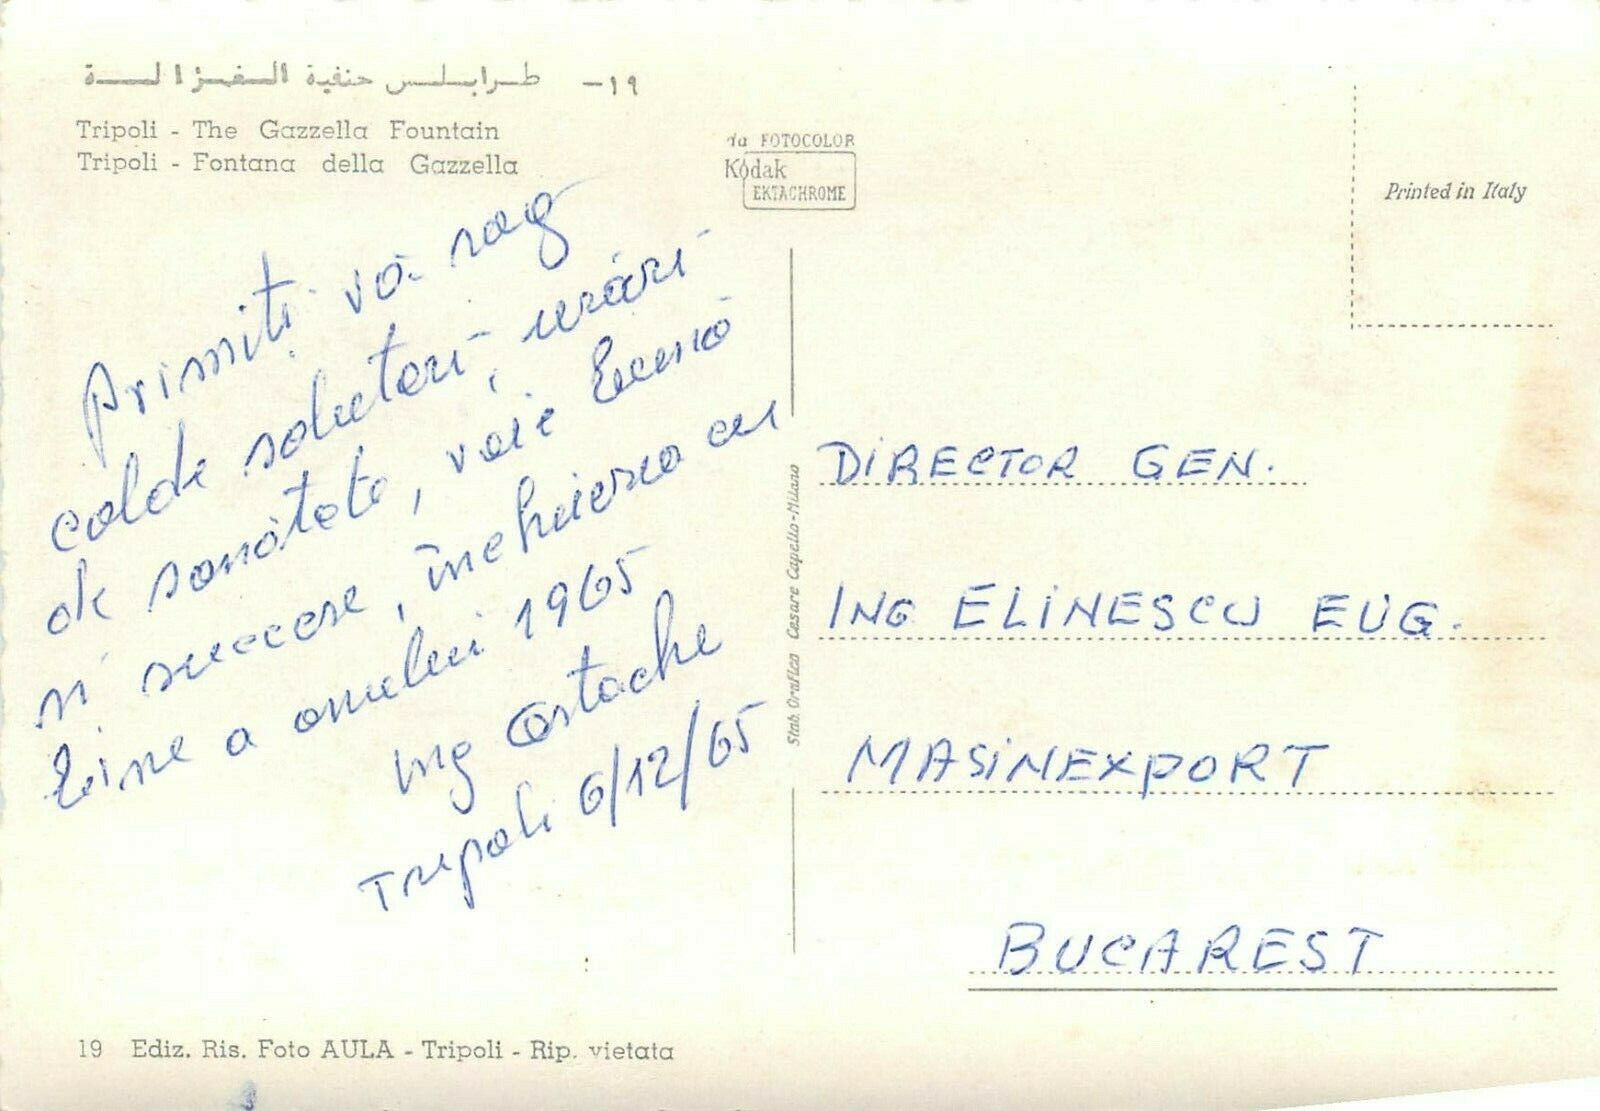 طرابلس حنفية الغزالة ١٩-
Tripoli - The Gazzella Fountain
Tripoli - Fontana della Gazzella
da FOTOCOLOR
Kodak
EKTACHROME
Printed in Italy
Primiți vă rog
calde salutări, urări
de sănătate, voie bună
și succese, încheierea cu
bine a anului 1965
Ing Costache
Tripoli 6/12/65
Stab. Grafico Cesare Capello - Milano
DIRECTOR GEN.
ING ELINESCU EUG.
MASINEXPORT
BUCAREST
19 Ediz. Ris. Foto AULA - Tripoli - Rip. vietata